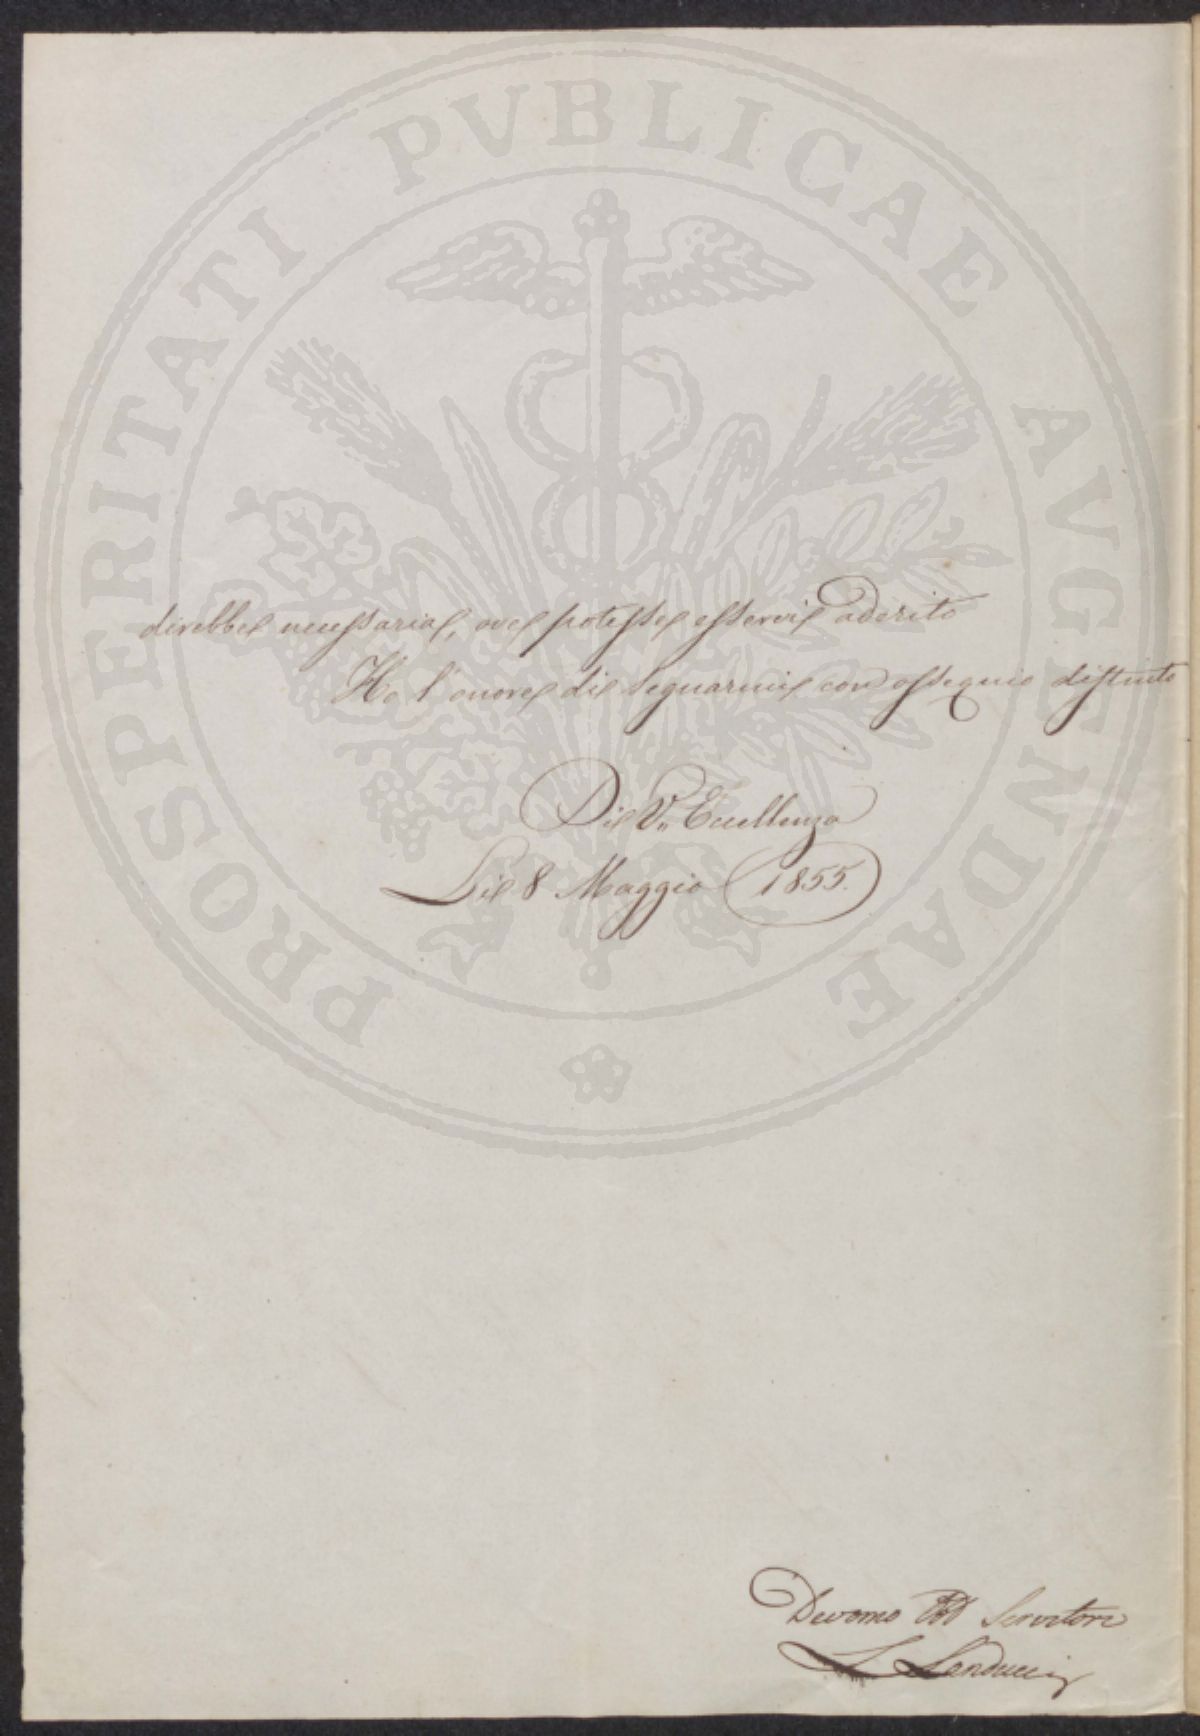 PROSPERITATI PVBLICAE AVGENDAE
direbbe necessaria, ove potesse esservi aderito
Ho l'onore di segnarmi con ossequio distinto
Di V. Eccellenza
Li 8 Maggio 1855.
Devomo Servitore
L Landucci